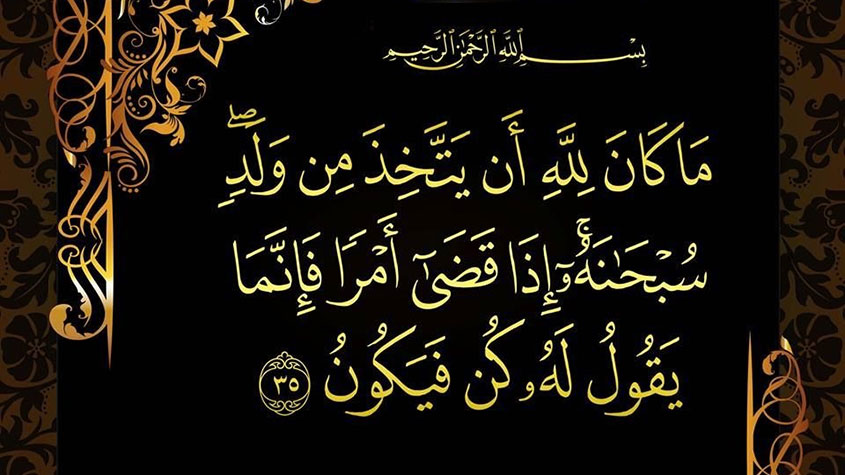 بِسْمِ اللَّهِ الرَّحْمَٰنِ الرَّحِيمِ
مَا كَانَ لِلَّهِ أَن يَتَّخِذَ مِن وَلَدٍ ۖ
سُبْحَـٰنَهُۥٓ ۚ إِذَا قَضَىٰٓ أَمْرًا فَإِنَّمَا
يَقُولُ لَهُۥ كُن فَيَكُونُ ٣٥